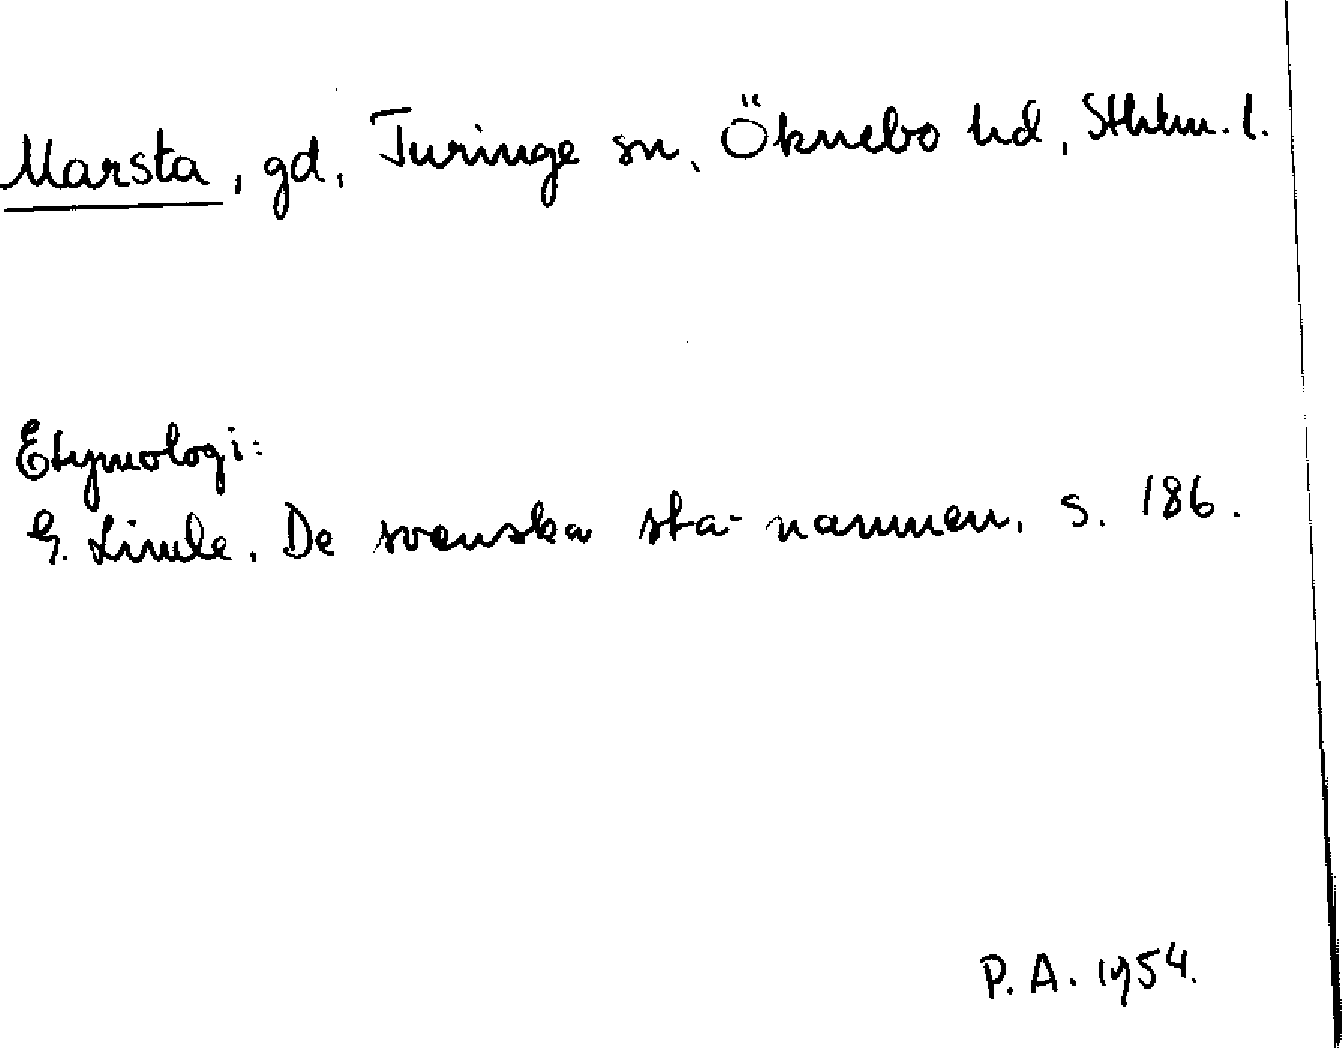 Marsta, gd, Turinge sn, Öknebo hd, Sthlm. l.
Etymologi:
G. Linde, De svenska sta-namnen, s. 186.
P. A. 1954.